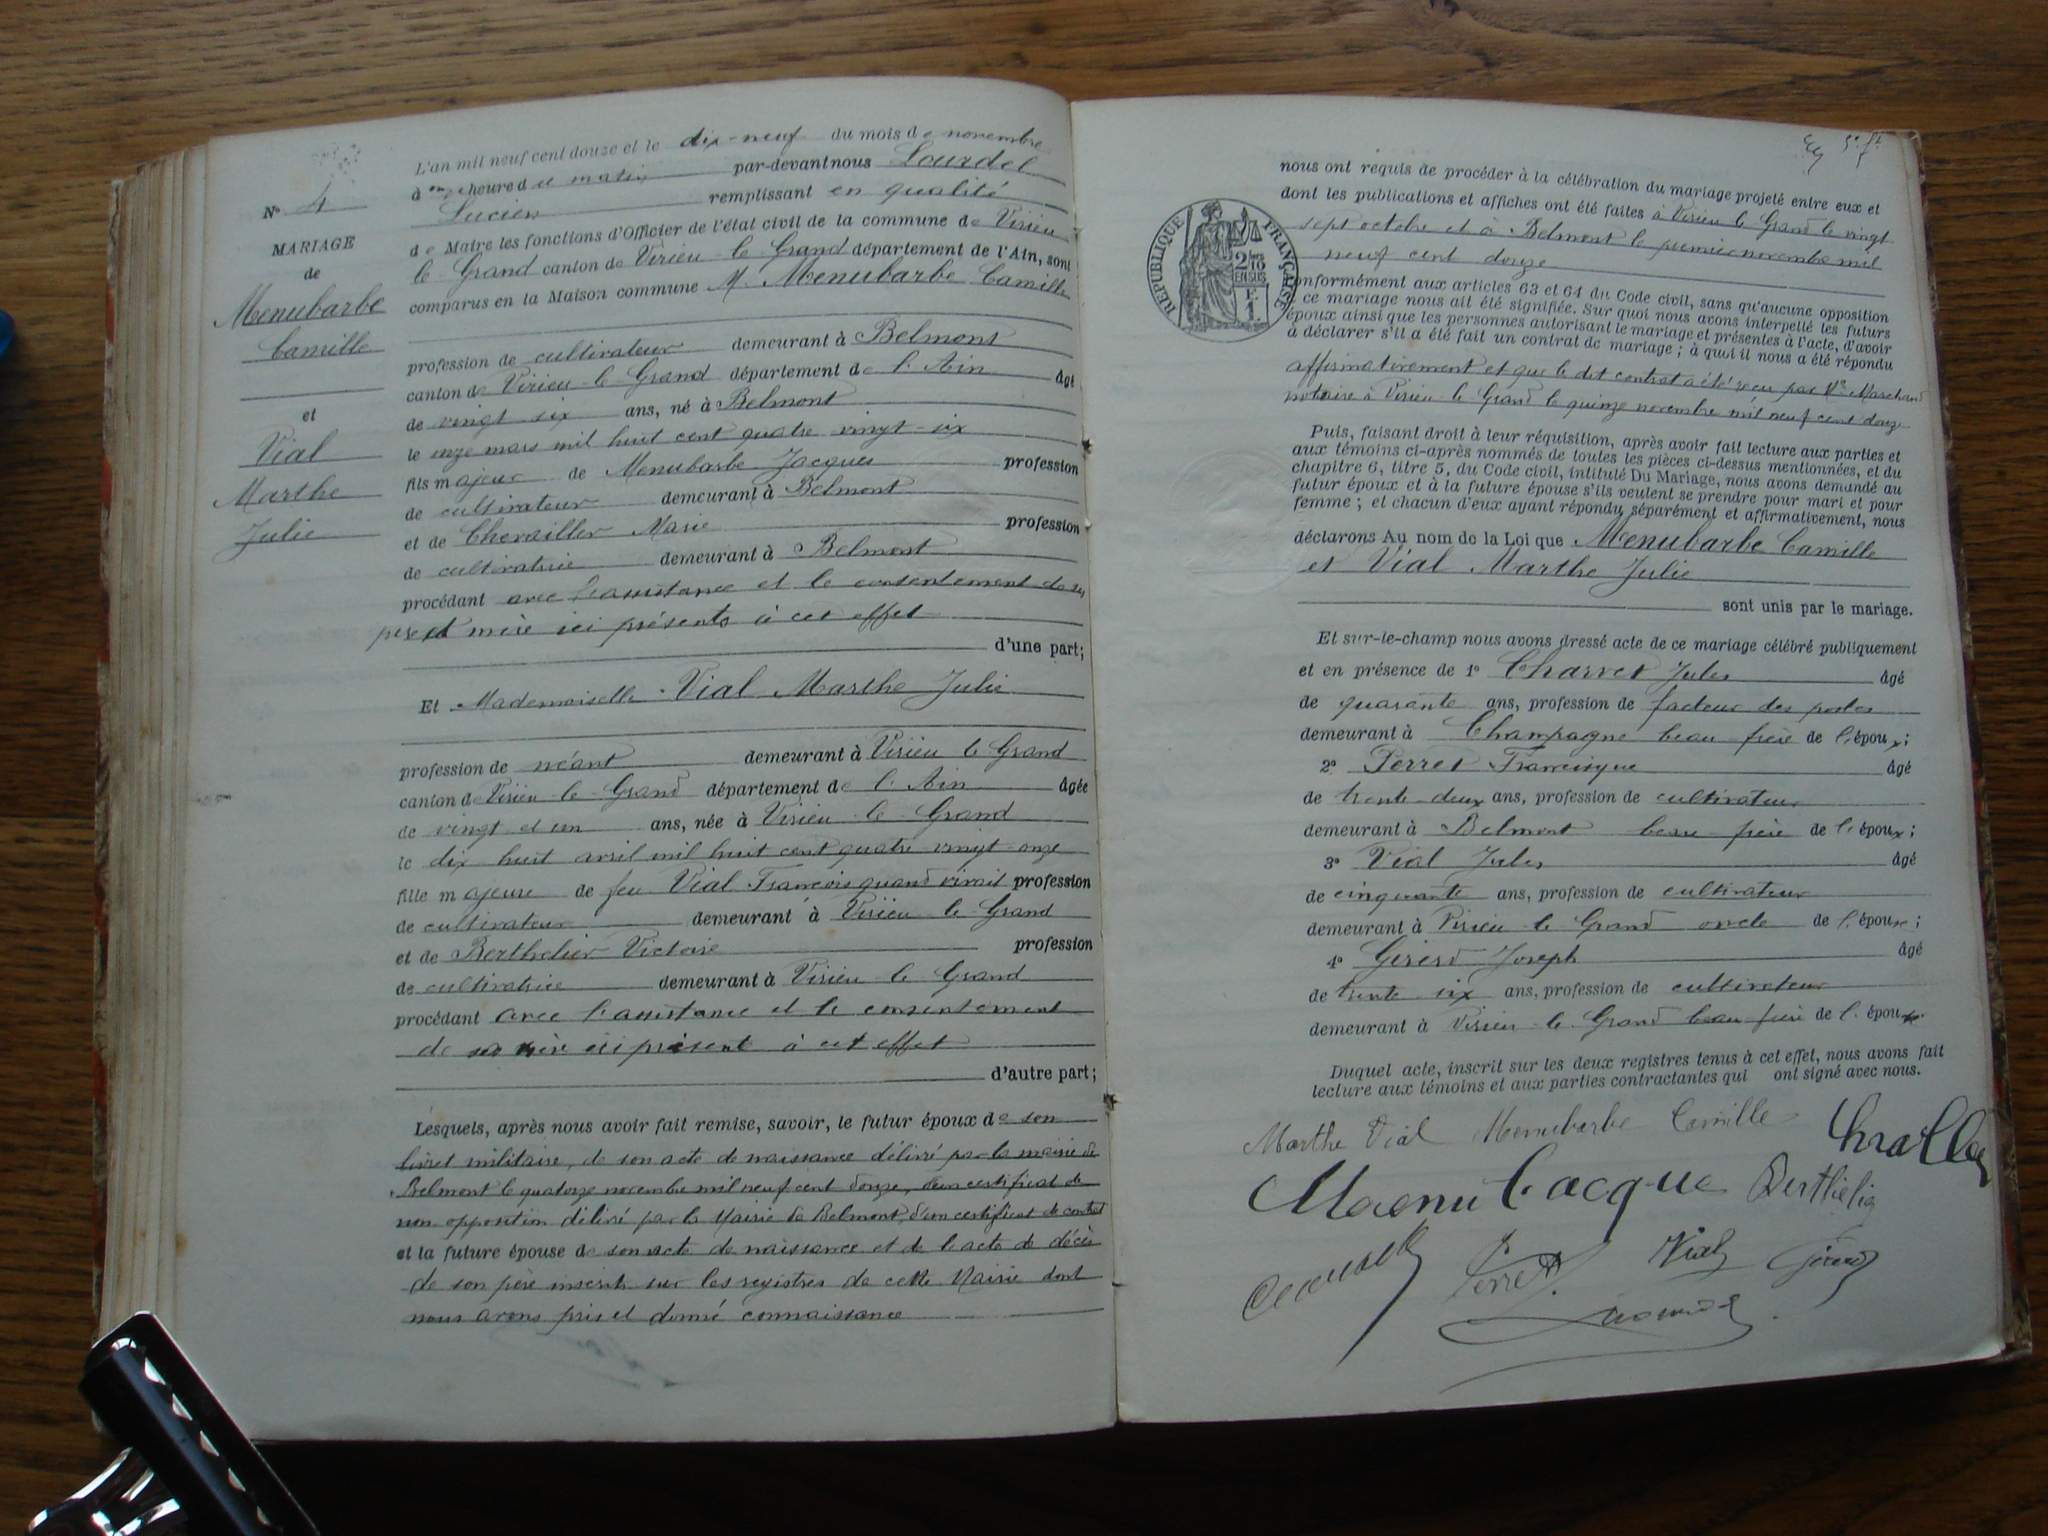 L'an mil neuf cent douze et le dix-neuf du mois de novembre
à onze heure du matin par-devant nous Lourdel
Lucien remplissant en qualité
de Maire les fonctions d'Officier de l'état civil de la commune de Virieu
le Grand canton de Virieu-le-Grand département de l'Ain, sont
comparus en la Maison commune M. Menubarbe Camille
profession de cultivateur demeurant à Belmont
canton de Virieu-le-Grand département de l'Ain âgé
de vingt six ans, né à Belmont
le onze mars mil huit cent quatre vingt-six
fils majeur de Menubarbe Jacques profession
de cultivateur demeurant à Belmont
et de Chevailler Marie profession
de cultivatrice demeurant à Belmont
procédant avec l'assistance et le consentement de ses
père et mère ici présents à cet effet
d'une part;
Et Mademoiselle Vial Marthe Julie
profession de néant demeurant à Virieu le Grand
canton de Virieu-le-Grand département de l'Ain âgée
de vingt et un ans, née à Virieu-le-Grand
le dix huit avril mil huit cent quatre-vingt-onze
fille majeure de feu Vial François quand vivait profession
de cultivateur demeurant à Virieu-le-Grand
et de Berthelier Victoire profession
de cultivatrice demeurant à Virieu-le-Grand
procédant avec l'assistance et le consentement
de sa mère ici présent à cet effet
d'autre part;
Lesquels, après nous avoir fait remise, savoir, le futur époux de son
livret militaire, de son acte de naissance délivré par la mairie de
Belmont le quatorze novembre mil neuf cent douze, d'un certificat de
non opposition délivré par la Mairie de Belmont, d'un certificat de contrat
et la future épouse de son acte de naissance et de l'acte de décès
de son père inscrits sur les registres de cette Mairie dont
nous avons pris et donné connaissance
N° 4
MARIAGE
de
Menubarbe
Camille
et
Vial
Marthe
Julie
RÉPUBLIQUE FRANÇAISE
2/10
EN SUS
F.
1.
nous ont requis de procéder à la célébration du mariage projeté entre eux et
dont les publications et affiches ont été faites à Virieu le Grand le vingt
sept octobre et à Belmont le premier novembre mil
neuf cent douze
conformément aux articles 63 et 64 du Code civil, sans qu'aucune opposition
à ce mariage nous ait été signifiée. Sur quoi nous avons interpellé les futurs
époux ainsi que les personnes autorisant le mariage et présentes à l'acte, d'avoir
à déclarer s'il a été fait un contrat de mariage; à quoi il nous a été répondu
affirmativement et que le dit contrat a été reçu par Me Marchand
notaire à Virieu-le-Grand le quinze novembre mil neuf cent douze
Puis, faisant droit à leur réquisition, après avoir fait lecture aux parties et
aux témoins ci-après nommés de toutes les pièces ci-dessus mentionnées, et du
chapitre 6, titre 5, du Code civil, intitulé Du Mariage, nous avons demandé au
futur époux et à la future épouse s'ils veulent se prendre pour mari et pour
femme; et chacun d'eux ayant répondu séparément et affirmativement, nous
déclarons Au nom de la Loi que Menubarbe Camille
et Vial Marthe Julie
sont unis par le mariage.
Et sur-le-champ nous avons dressé acte de ce mariage célébré publiquement
et en présence de 1° Charvet Jules âgé
de quarante ans, profession de facteur des postes
demeurant à Champagne beau frère de l'époux;
2° Perret Francisque âgé
de trente-deux ans, profession de cultivateur
demeurant à Belmont beau-frère de l'époux;
3° Vial Jules âgé
de cinquante ans, profession de cultivateur
demeurant à Virieu-le-Grand oncle de l'épouse;
4° Girerd Joseph âgé
de trente six ans, profession de cultivateur
demeurant à Virieu-le-Grand beau frère de l'épouse
Duquel acte, inscrit sur les deux registres tenus à cet effet, nous avons fait
lecture aux témoins et aux parties contractantes qui ont signé avec nous.
Marthe Vial Menubarbe Camille
Perret Vial Girerd